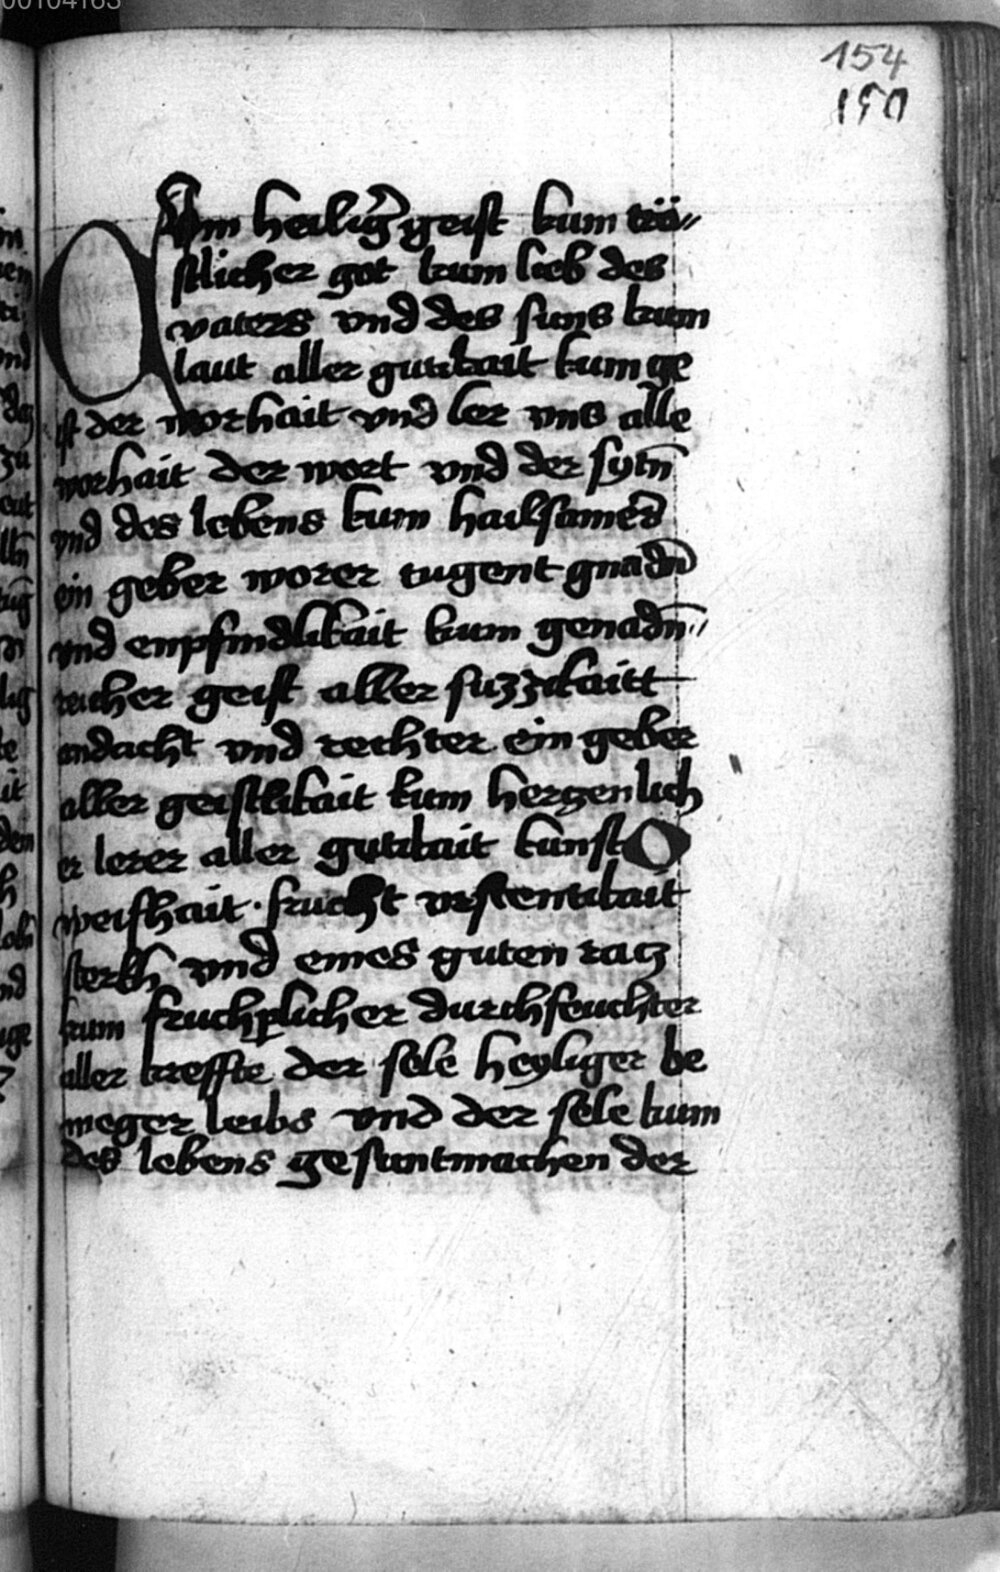 00104163
154
150
Qum heiliḡ geist kum trö〃
stlicher got kum lieb des
vaters vnd des suns kum
laut aller gutikait kum ge
ist der worhait vnd ler vns alle
worhait der wort vnd der sytn̄
vnd des lebens kum hailsamer̄
ein geber worer tugent gnadn̄
vnd enpfindlikait kum genadn̄〃
reicher geist aller suzzikaitt
andacht vnd rechter ein geber
aller geistlikait kum herczenlich
er lerer aller gutikait kunst O
weishait · frucht vestentikait
sterkh vnd eines guten racz
kum fruchperlicher durchfeuchter
aller kreffte der sele heyliger be
weger leibs vnd der sele kum
des lebens gesuntmachen der